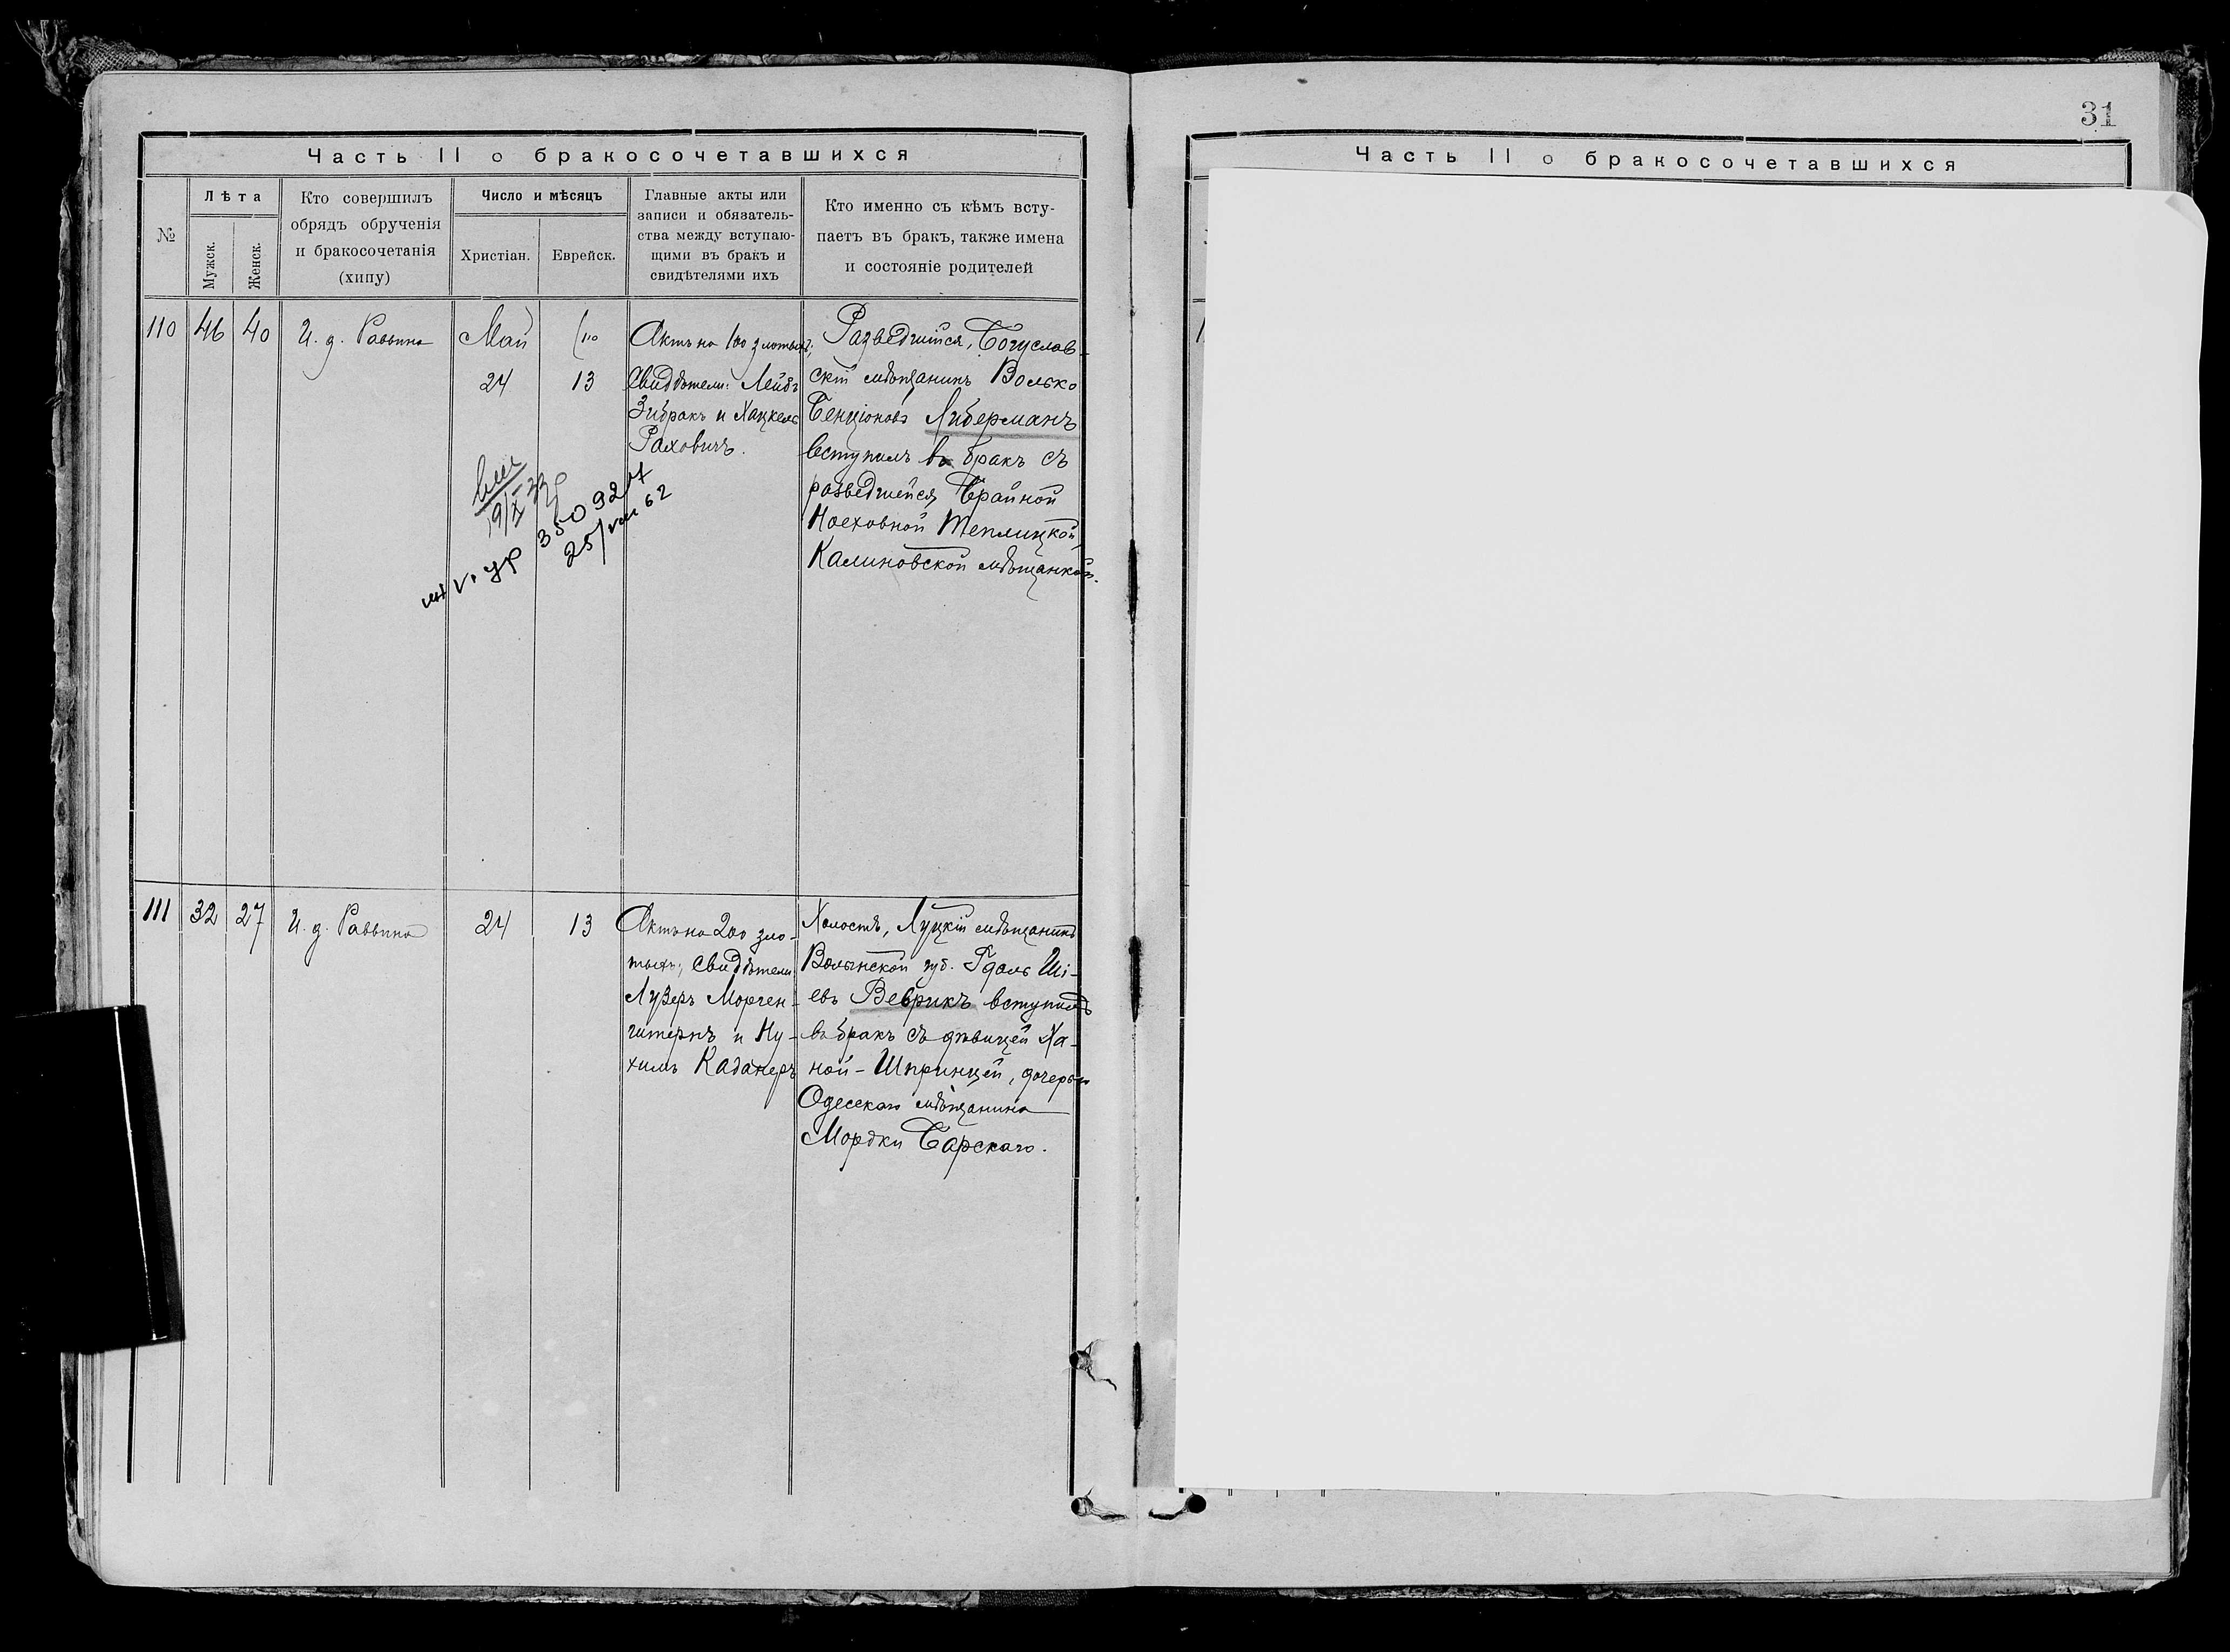 31
Часть II о бракосочетавшихся
Часть II о бракосочетавшихся
№
Лѣта
Мужск.
Женск.
Кто совершилъ
обрядъ обрученія
и бракосочетанія
(хипу)
Число и мѣсяцъ
Христіан.
Еврейск.
Главные акты или
записи и обязатель-
ства между вступаю-
щими въ бракъ и
свидѣтелями ихъ
Кто именно съ кѣмъ всту-
паетъ въ бракъ, также имена
и состояніе родителей
110
46
40
И. д. Раввина
Май
24
13
Актъ на 100 злотыхъ;
Свидѣтели: Лейбъ
Зибракъ и Хацкель
Раховичъ.
Разведшійся, Богуслав-
скій мѣщанинъ Волько
Бенціоновъ Либерманъ
вступилъ въ бракъ съ
разведшейся Брайной
Ноеховной Теплицкой,
Калиновской мѣщанкой.
350927
25/VIII 62
111
32
27
И. д. Раввина
24
13
Актъ на 200 зло-
тыхъ; Свидѣтели
Лузеръ Морген-
штернъ и Ну-
химъ Каданеръ
Холостъ, Луцкій мѣщанинъ
Волынской губ. Гдаль Ші-
евъ Веврикъ вступилъ
въ бракъ съ дѣвицей Ха-
ной-Шпринцей, дочерью
Одесскаго мѣщанина
Мордки Барскаго.